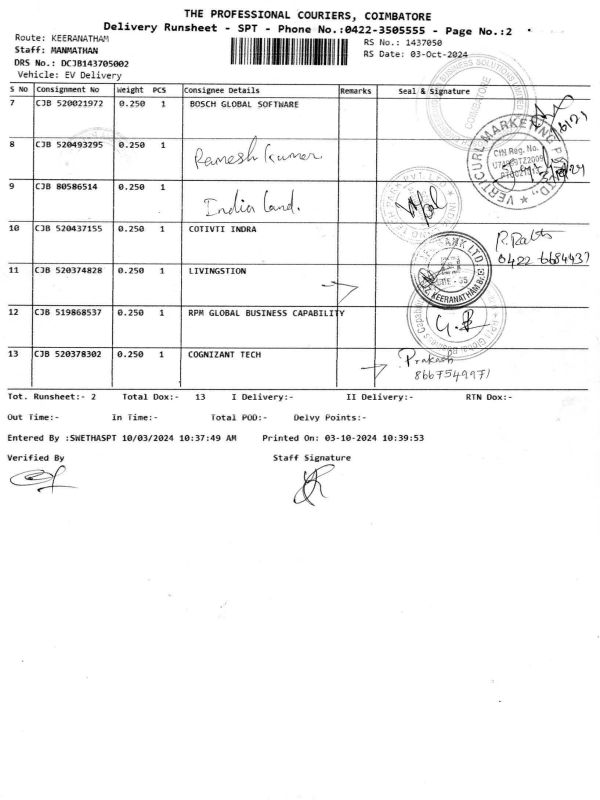 THE PROFESSIONAL COURIERS, COIMBATORE
Delivery Runsheet - SPT - Phone No.:0422-3505555 - Page No.:2
Route: KEERANATHAM
Staff: MANMATHAN
DRS No.: DCJB143705002
Vehicle: EV Delivery
RS No.: 1437050
RS Date: 03-Oct-2024
S No Consignment No Weight PCS Consignee Details Remarks Seal & Signature
7 CJB 520021972 0.250 1 BOSCH GLOBAL SOFTWARE
BUSINESS SOLUTIONS
COIMBATORE
8 CJB 520493295 0.250 1 Ramesh Kumar
VERTICURL MARKETING
CIN Reg. No.
9 CJB 80586514 0.250 1 India Land.
10 CJB 520437155 0.250 1 COTIVTI INDRA
0422 6684437
11 CJB 520374828 0.250 1 LIVINGSTION
BANK LTD.
KEERANATHAM
12 CJB 519868537 0.250 1 RPM GLOBAL BUSINESS CAPABILITY
13 CJB 520378302 0.250 1 COGNIZANT TECH
Prakash
8667549971
Tot. Runsheet:- 2 Total Dox:- 13 I Delivery:- II Delivery:- RTN Dox:-
Out Time:- In Time:- Total POD:- Delvy Points:-
Entered By :SWETHASPT 10/03/2024 10:37:49 AM Printed On: 03-10-2024 10:39:53
Verified By Staff Signature